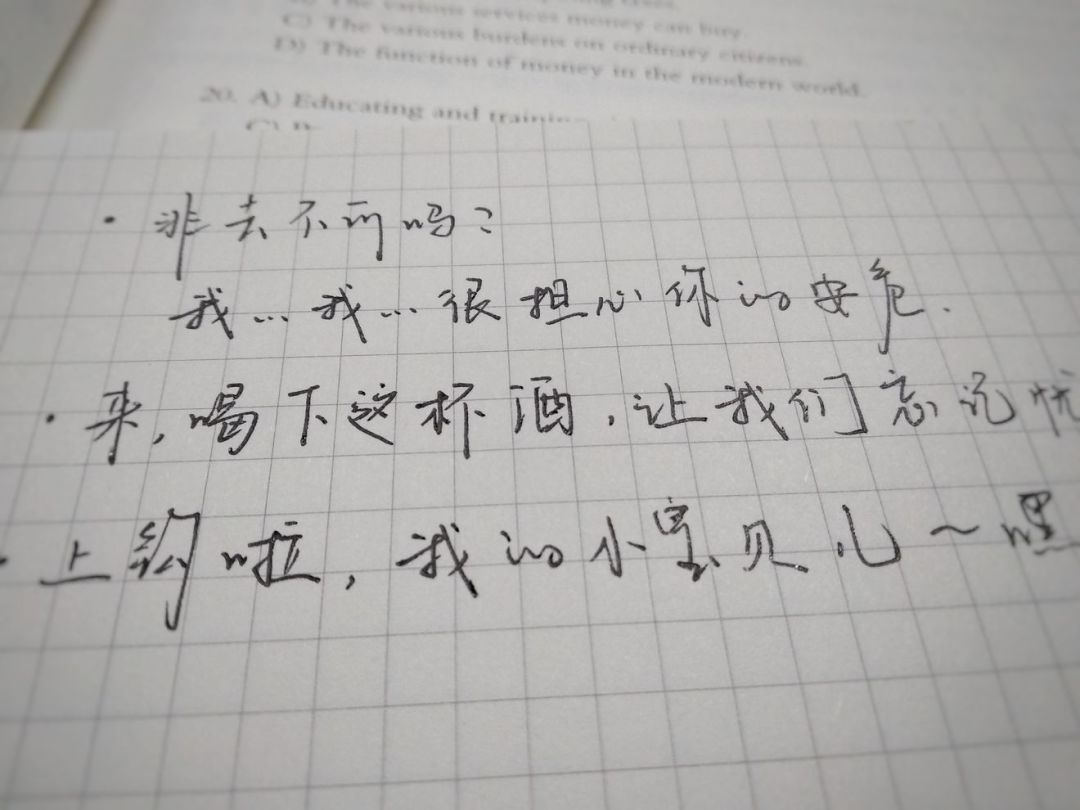 The various services money can buy.
C) The various burdens on ordinary citizens.
D) The function of money in the modern world.
20. A) Educating and training
· 非去不可吗？
我…我…很担心你的安危.
· 来，喝下这杯酒，让我们忘记忧
· 上钩啦，我的小宝贝儿～嘿